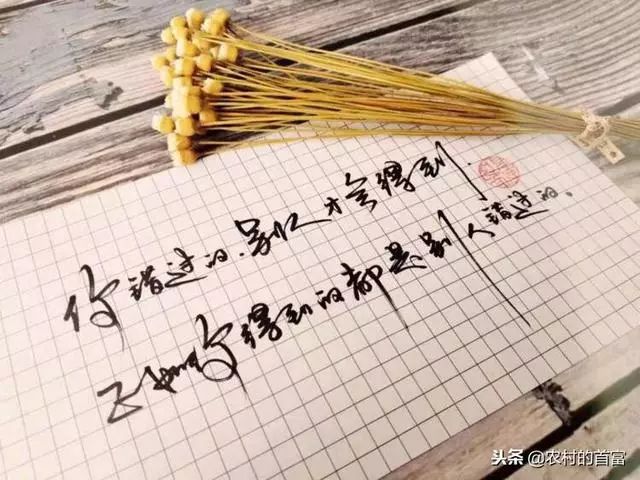 你错过的.别人才会得到.
正如你得到的都是别人错过的。
头条 @农村的首富